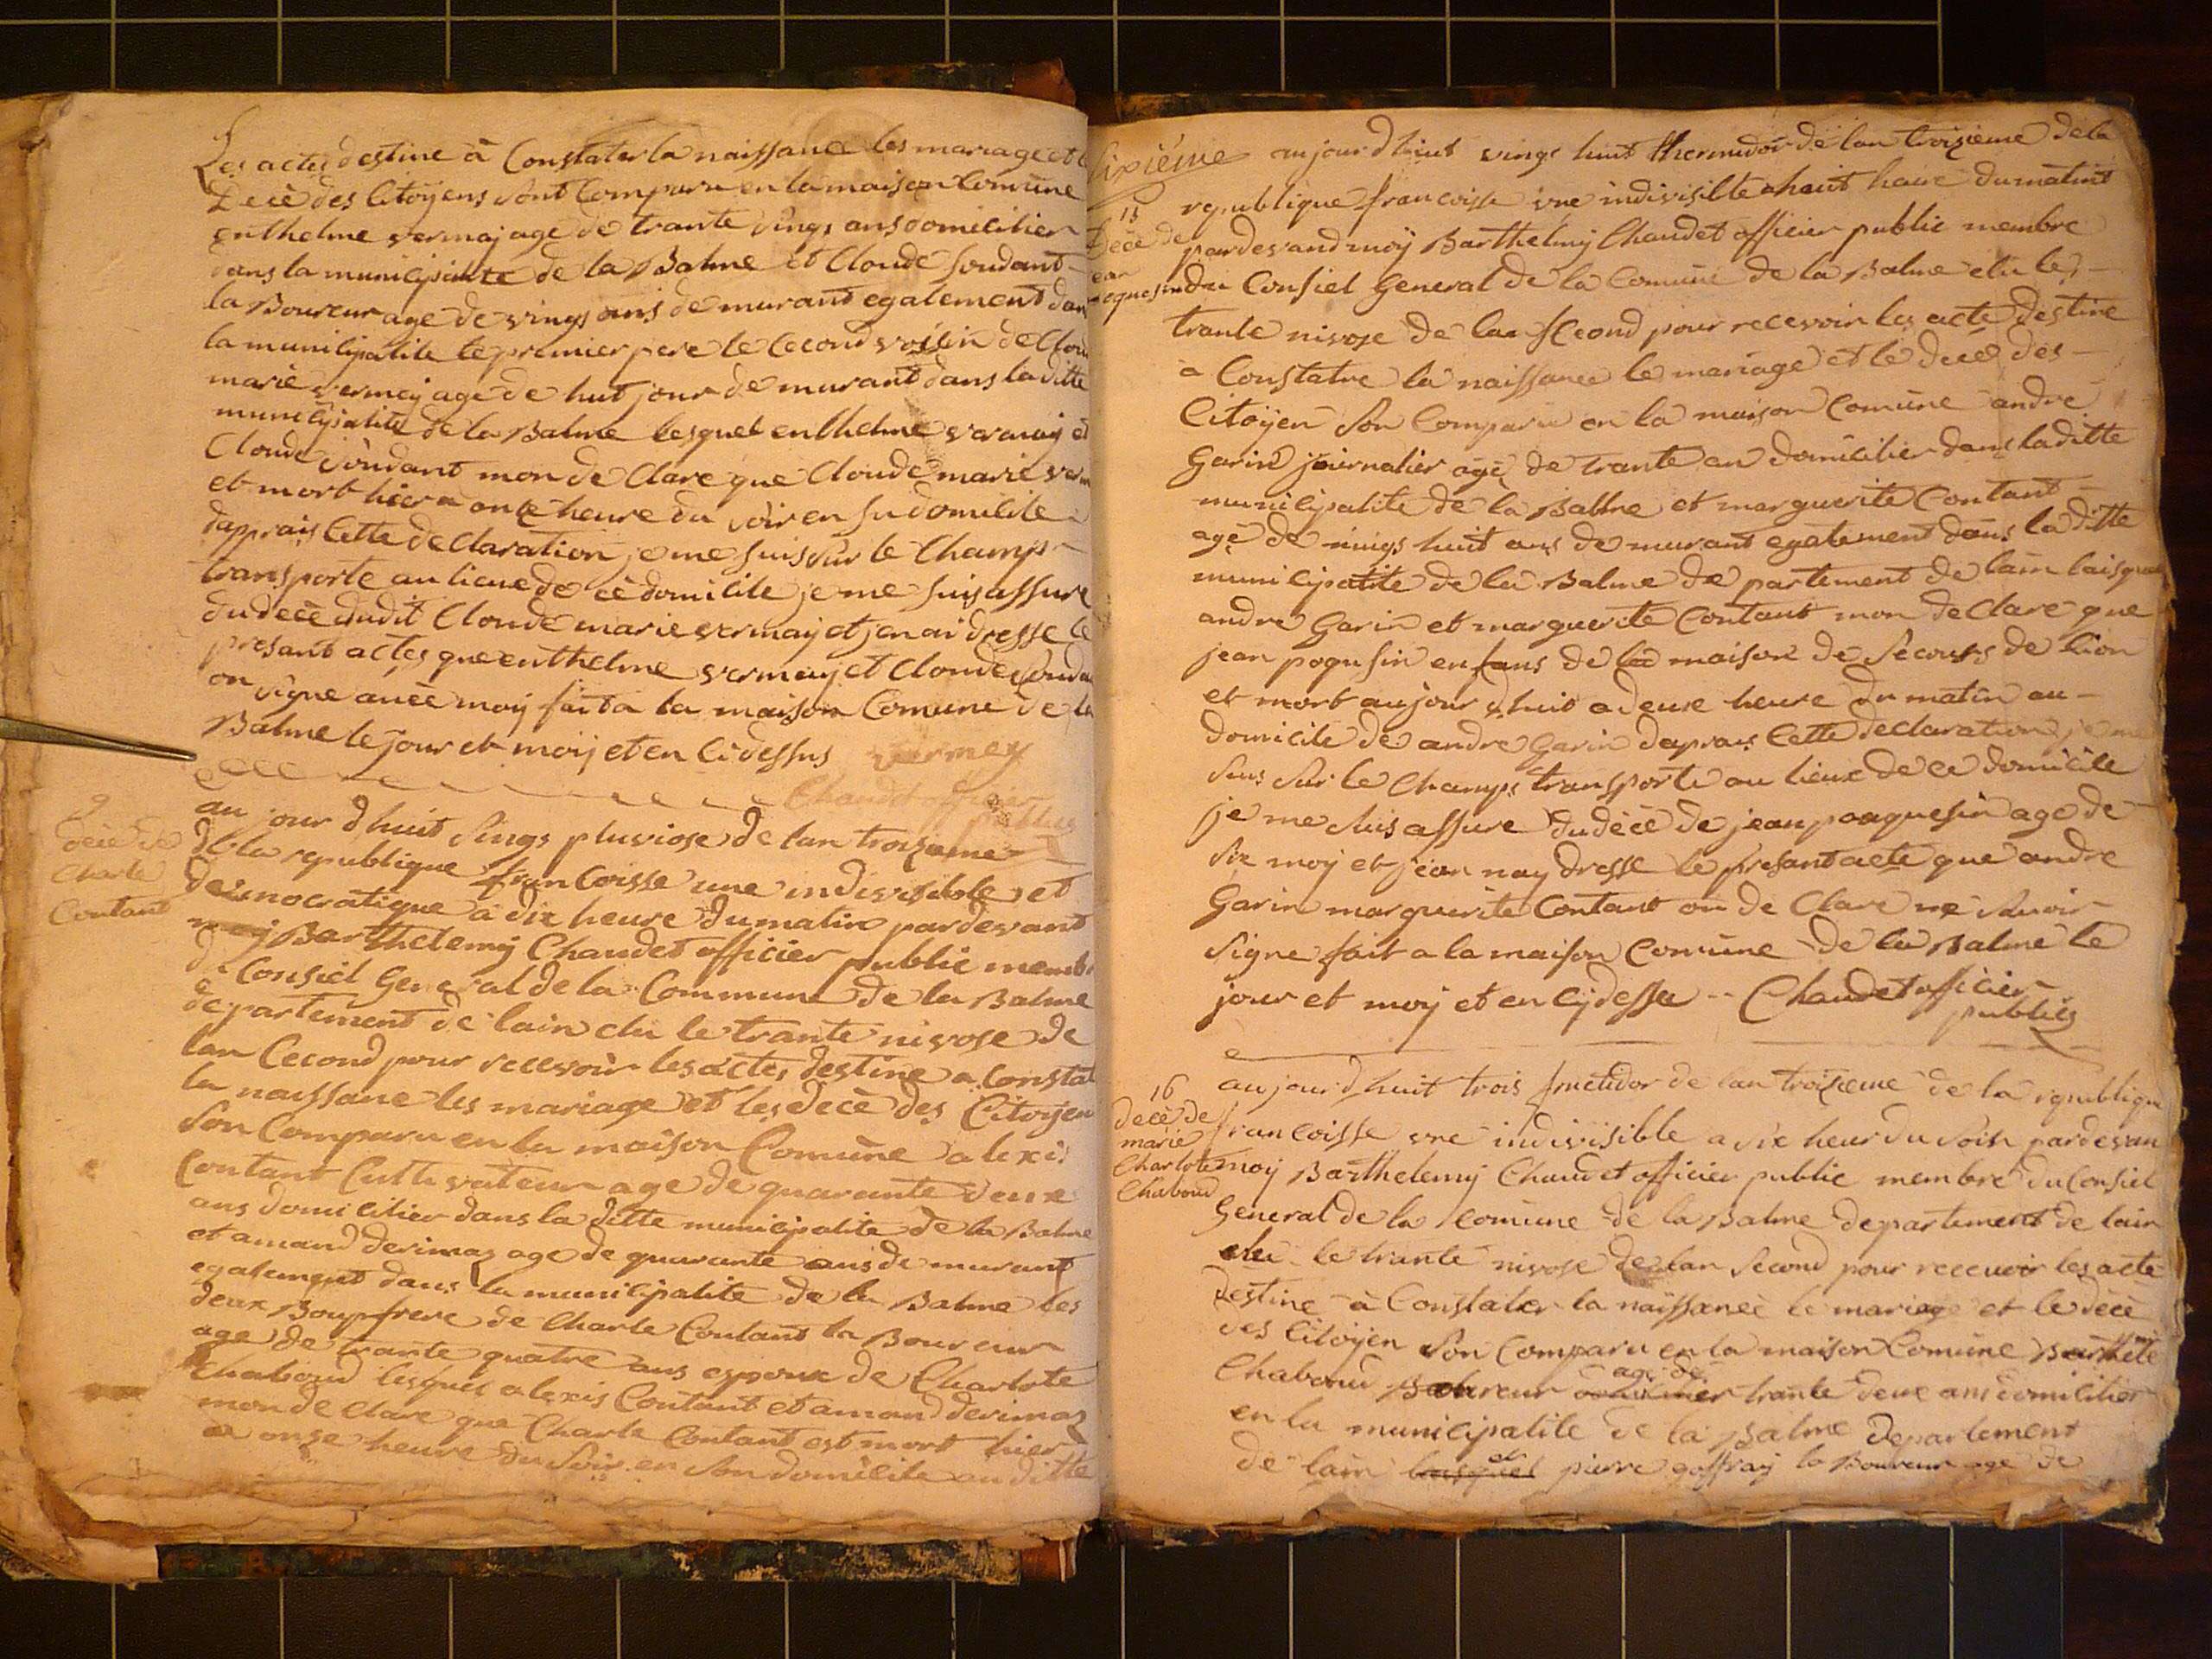 Les actes destine à Constater la naissance les mariage et
Decè des Citoÿens sont Comparu en la maison Comune
enthelme vermaj age de trante sings ans domicilier
dans la municipalite de la Balme et Cloude soudant
la Boureur age de vings ans de murant egalement dan
la municipalite le premier pere le Cecond voisin de Clou
marie vermey age de huit jour de murant dans la ditte
municipalite de la Balme lesquel enthelme vermaij et
Cloude soudant mon de Clare que Cloude marie ver
et mort hier a onze heure du soir en su domicile
dapprais Cette de Claration je me suis sur le Champs
transporte au lieue de ce domicile je me suis assure
du decè dudit Cloude marie vermaij et jen ai dresse le
presant actes que enthelme vermaij et Cloude soudan
on signe avec moij fait a la maison Comune de la
Balme le jour et moij et en Cidessus vermey
Chaudet officier
public
9
decè de
Charle
Contant
au jour d huit sings pluviose de lan troizieme
de la republique francoisse une indivisible et
democratique a dix heure du matin pardevant
moij Barthelemij Chaudet officier public membr
du Consiel General de la Commune de la Balme
departement de lain elu le trante nivose de
lan Cecond pour recevoir les actes destine a Constat
la naissance les mariage et les decè des Citoijen
son Comparu en la maison Comune alexis
Contant Cultivateur age de quarante deux
ans domicilier dans la ditte municipalite de la Balme
et amand derimaz age de quarante ans de murant
egalement dans la municipalite de la Balme les
deux Boupfrere de Charle Contant la Boureur
age de trante quatre ans espoux de Charlote
Chaboud lesquel alexis Contant et amand derimaz
mon de Clare que Charle Contant est mort hier
a onze heure du soir en son domicile au ditte
sixiéme aujourdhuit vings huit thermidor de lan troizieme de la
15
Decè de
jean
republique francoisse une indivisible a heuit heure du matint
pardevand moÿ Barthelemij Chaudet officier public membre
du Consiel General de la Comune de la Balme elu le
trante nivose de lan second pour recevoir les acte destine
a Constatre la naissance le mariage et le decè des
Citoÿen son Comparu en la maison Comune andre
Garin journalier age de trante an domicilier dans la ditte
municipalite de la Balme et marguerite Contant
agé de vings huit ans de murant egalement dans la ditte
municipalite de la Balme de partement de lain laisquel
andre Garin et marguerite Contant mon de Clare que
jean poqusin enfans de la maison de Secours de lion
et mort aujour dhuit a deux heure du matin au
domicile de andre Garin dapprais Cette declaration je me
suis sur le Champs transporte au lieux de ce domicile
je me suis assure du décè de jean poaquesin age de
six moij et jean naÿ dresse le presant acte que andre
Garin marguerite Contant on de Clare ne savoir
signe fait a la maison Comune de la Balme le
jour et moij et en Cijdessu Chaudet officier
public
16
decè de
marie
Charlote
Chaboud
aujourdhuit trois fructidor de lan troizieme de la republique
francoisse une indivisible a six heur du soir pardevan
moij Barthelemij Chaudet officier public membre du Consiel
General de la Comune de la Balme departement de lain
elu le trante nivose de lan second pour recevoir les acte
destine à Constater la naissance le mariage et le decè
des Citoijen son Comparu en la maison Comune Barthele
Chaboud Boureur age de trante deux ans domicilier
en la municipalite de la Balme departement
de lain lesquel et pierre goffraij la Boureur age de